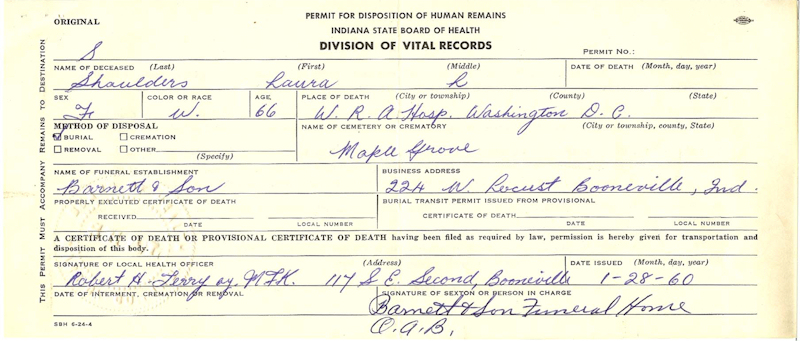 ORIGINAL
PERMIT FOR DISPOSITION OF HUMAN REMAINS
INDIANA STATE BOARD OF HEALTH
DIVISION OF VITAL RECORDS
PERMIT NO.:
S
NAME OF DECEASED (Last) (First) (Middle) DATE OF DEATH (Month, day, year)
Shoulders Laura R
SEX COLOR OR RACE AGE PLACE OF DEATH (City or township) (County) (State)
F W. 66 W. R. A. Hosp. Washington D. C.
METHOD OF DISPOSAL NAME OF CEMETERY OR CREMATORY (City or township, county, State)
BURIAL CREMATION
REMOVAL OTHER
(Specify)
Maple Grove
NAME OF FUNERAL ESTABLISHMENT BUSINESS ADDRESS
Barnett & Son 224 W Locust Booneville, Ind.
PROPERLY EXECUTED CERTIFICATE OF DEATH BURIAL TRANSIT PERMIT ISSUED FROM PROVISIONAL
RECEIVED CERTIFICATE OF DEATH
DATE LOCAL NUMBER DATE LOCAL NUMBER
A CERTIFICATE OF DEATH OR PROVISIONAL CERTIFICATE OF DEATH having been filed as required by law, permission is hereby given for transportation and
disposition of this body.
SIGNATURE OF LOCAL HEALTH OFFICER (Address) DATE ISSUED (Month, day, year)
Robert H. Terry 117 S E. Second, Booneville 1-28-60
DATE OF INTERMENT, CREMATION OR REMOVAL SIGNATURE OF SEXTON OR PERSON IN CHARGE
Barnett & Son Funeral Home
O.A.B.
SBH 6-24-4
THIS PERMIT MUST ACCOMPANY REMAINS TO DESTINATION